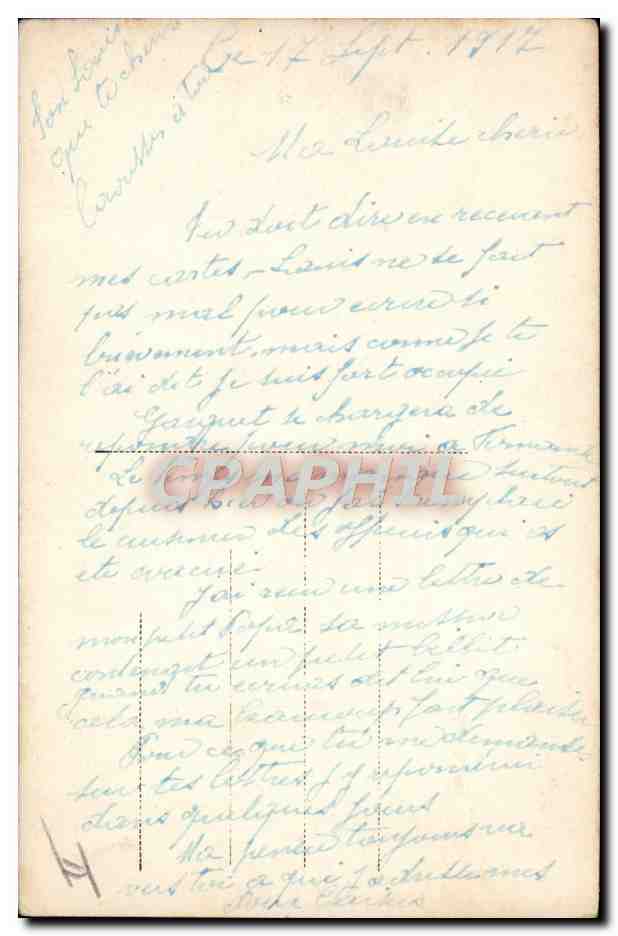 Le 17 Sept. 1917
Ma Louise cherie
Tu doit dire en recevent
mes cartes, Louis ne se fait
pas mal pour ecrire si
brievement, mais comme je te
l'ai dit je suis fort occupé
se chargera de
repondre pour moi a Fernand
Le surtout
depuis hier j'ai remplacé
le cuisinier des qui as
eté evacué.
J'ai recu une lettre de
mon petit Papa sa
contenait un petit billet.
quand tu ecriras dit lui que
cela ma beaucoup fait plaisir
Pour ce que tu me demande
sur tes lettres j'y reponderai
dans quelques jours
Ma pensée toujours va
vers toi a qui j'adresse mes
Ton Louis
que te cheri
Caresses a
CPAPHIL